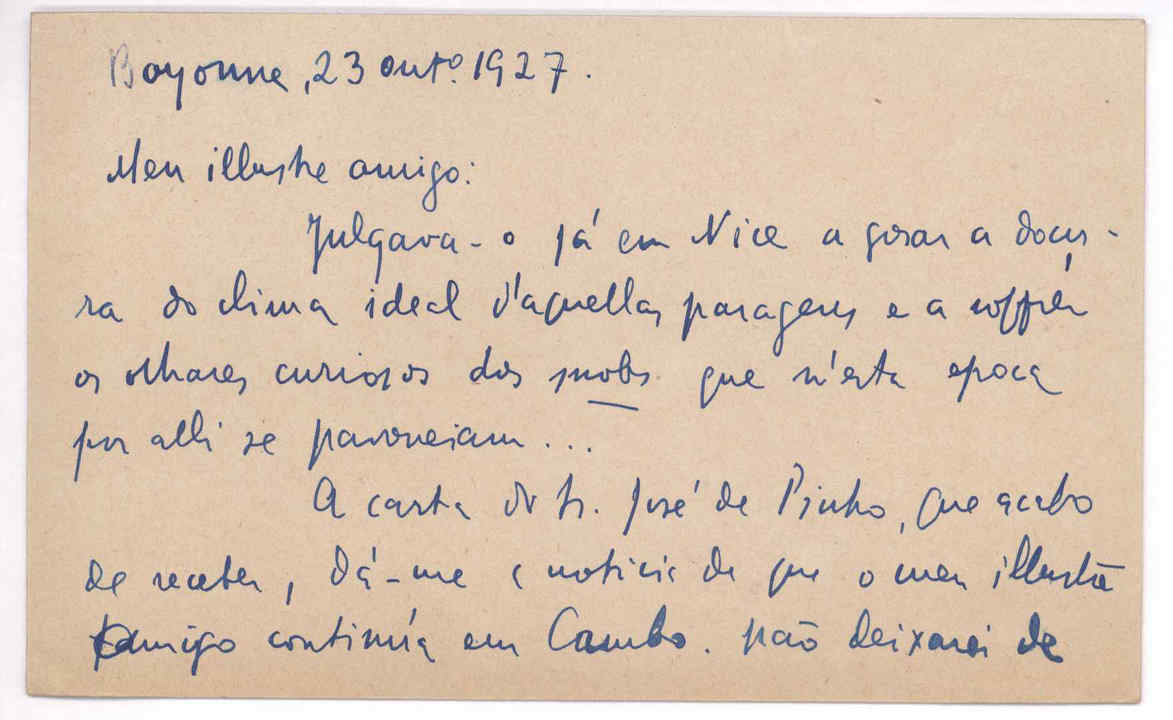 Bayonne, 23 outº 1927.
Meu illustre amigo:
Julgava-o já em Nice a gosar a doçu-
ra do clima ideal d'aquellas paragens e a soffrer
os olhares curiosos dos snobs que n'esta epoca
por alli se pavoneiam...
A carta do Sr. José de Pinho, que acabo
de receber, dá-me a noticia de que o meu illustre
amigo continúa em Cambo. Não deixarei de